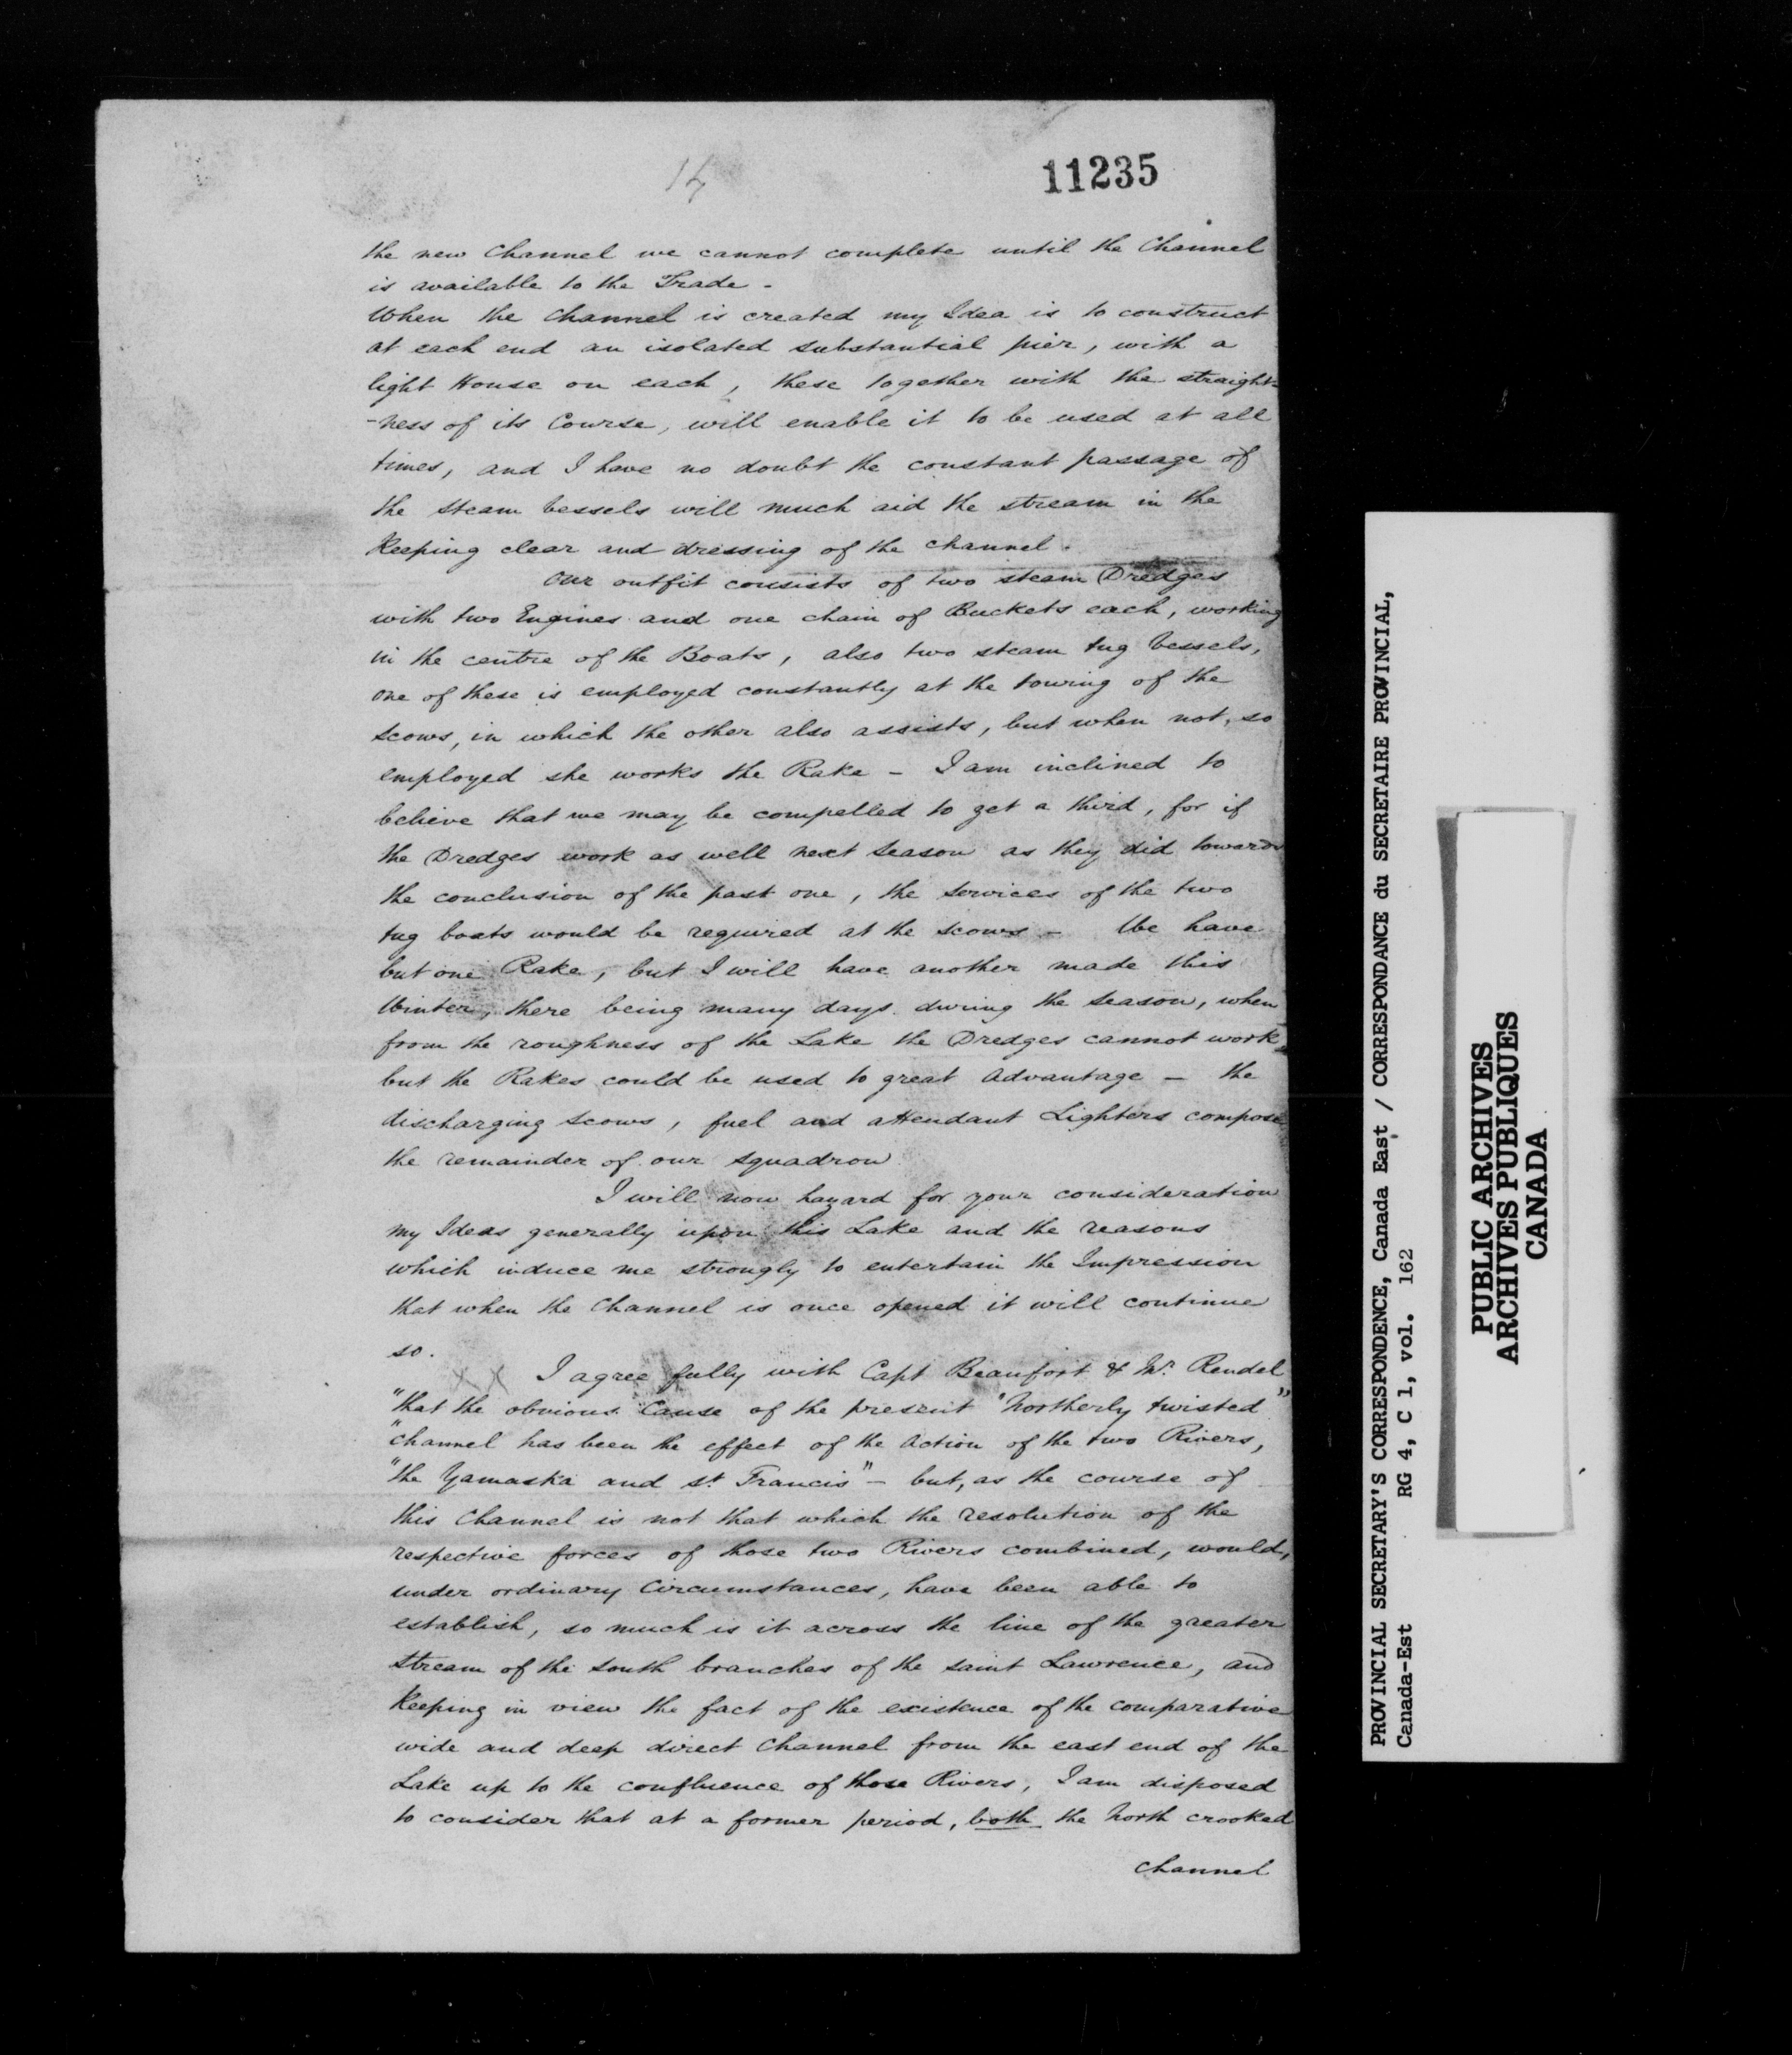 11235
the new Channel we cannot complete until the Channel
is available to the Trade -
When the Channel is created my Idea is to construct
at each end an isolated substantial pier, with a
light House on each, these together with the straight=
-ness of its Course, will enable it to be used at all
times, and I have no doubt the constant passage of
the steam vessels will much aid the stream in the
Keeping clear and dressing of the channel.
Our outfit consists of two steam Dredges
with two Engines and one chain of Buckets each, working
in the centre of the Boats, also two steam tug Vessels,
one of these is employed constantly at the towing of the
scows, in which the other also assists, but when not, so
employed she works the Rake - I am inclined to
believe that we may be compelled to get a third, for if
the Dredges work as well next season as they did towards
the conclusion of the past one, the services of the two
tug boats would be required at the scows - We have
but one Rake, but I will have another made this
Winter, there being many days during the season, when
from the roughness of the Lake the Dredges cannot work
but the Rakes could be used to great Advantage - the
discharging scows, fuel and attendant Lighters compose
the remainder of our squadron
I will now hazard for your consideration
my Ideas generally upon this Lake and the reasons
which induce me strongly to entertain the Impression
that when the Channel is once opened it will continue
so.
X X I agree fully with Capt Beaufort & Mr. Rendel
"that the obvious Cause of the present "Northerly twisted"
"channel has been the effect of the Action of the two Rivers,
"the Yamaska and St. Francis" - but, as the course of
this Channel is not that which the resolution of the
respective forces of those two Rivers combined, would,
under ordinary Circumstances, have been able to
establish, so much is it across the line of the greater
stream of the South branches of the Saint Lawrence, and
Keeping in view the fact of the existence of the comparative
wide and deep direct Channel from the east end of the
Lake up to the confluence of those Rivers, I am disposed
to consider that at a former period, both the North crooked
channel
PROVINCIAL SECRETARY'S CORRESPONDENCE, Canada East / CORRESPONDANCE du SECRETAIRE PROVINCIAL,
Canada-Est RG 4, C 1, vol. 162
PUBLIC ARCHIVES
ARCHIVES PUBLIQUES
CANADA